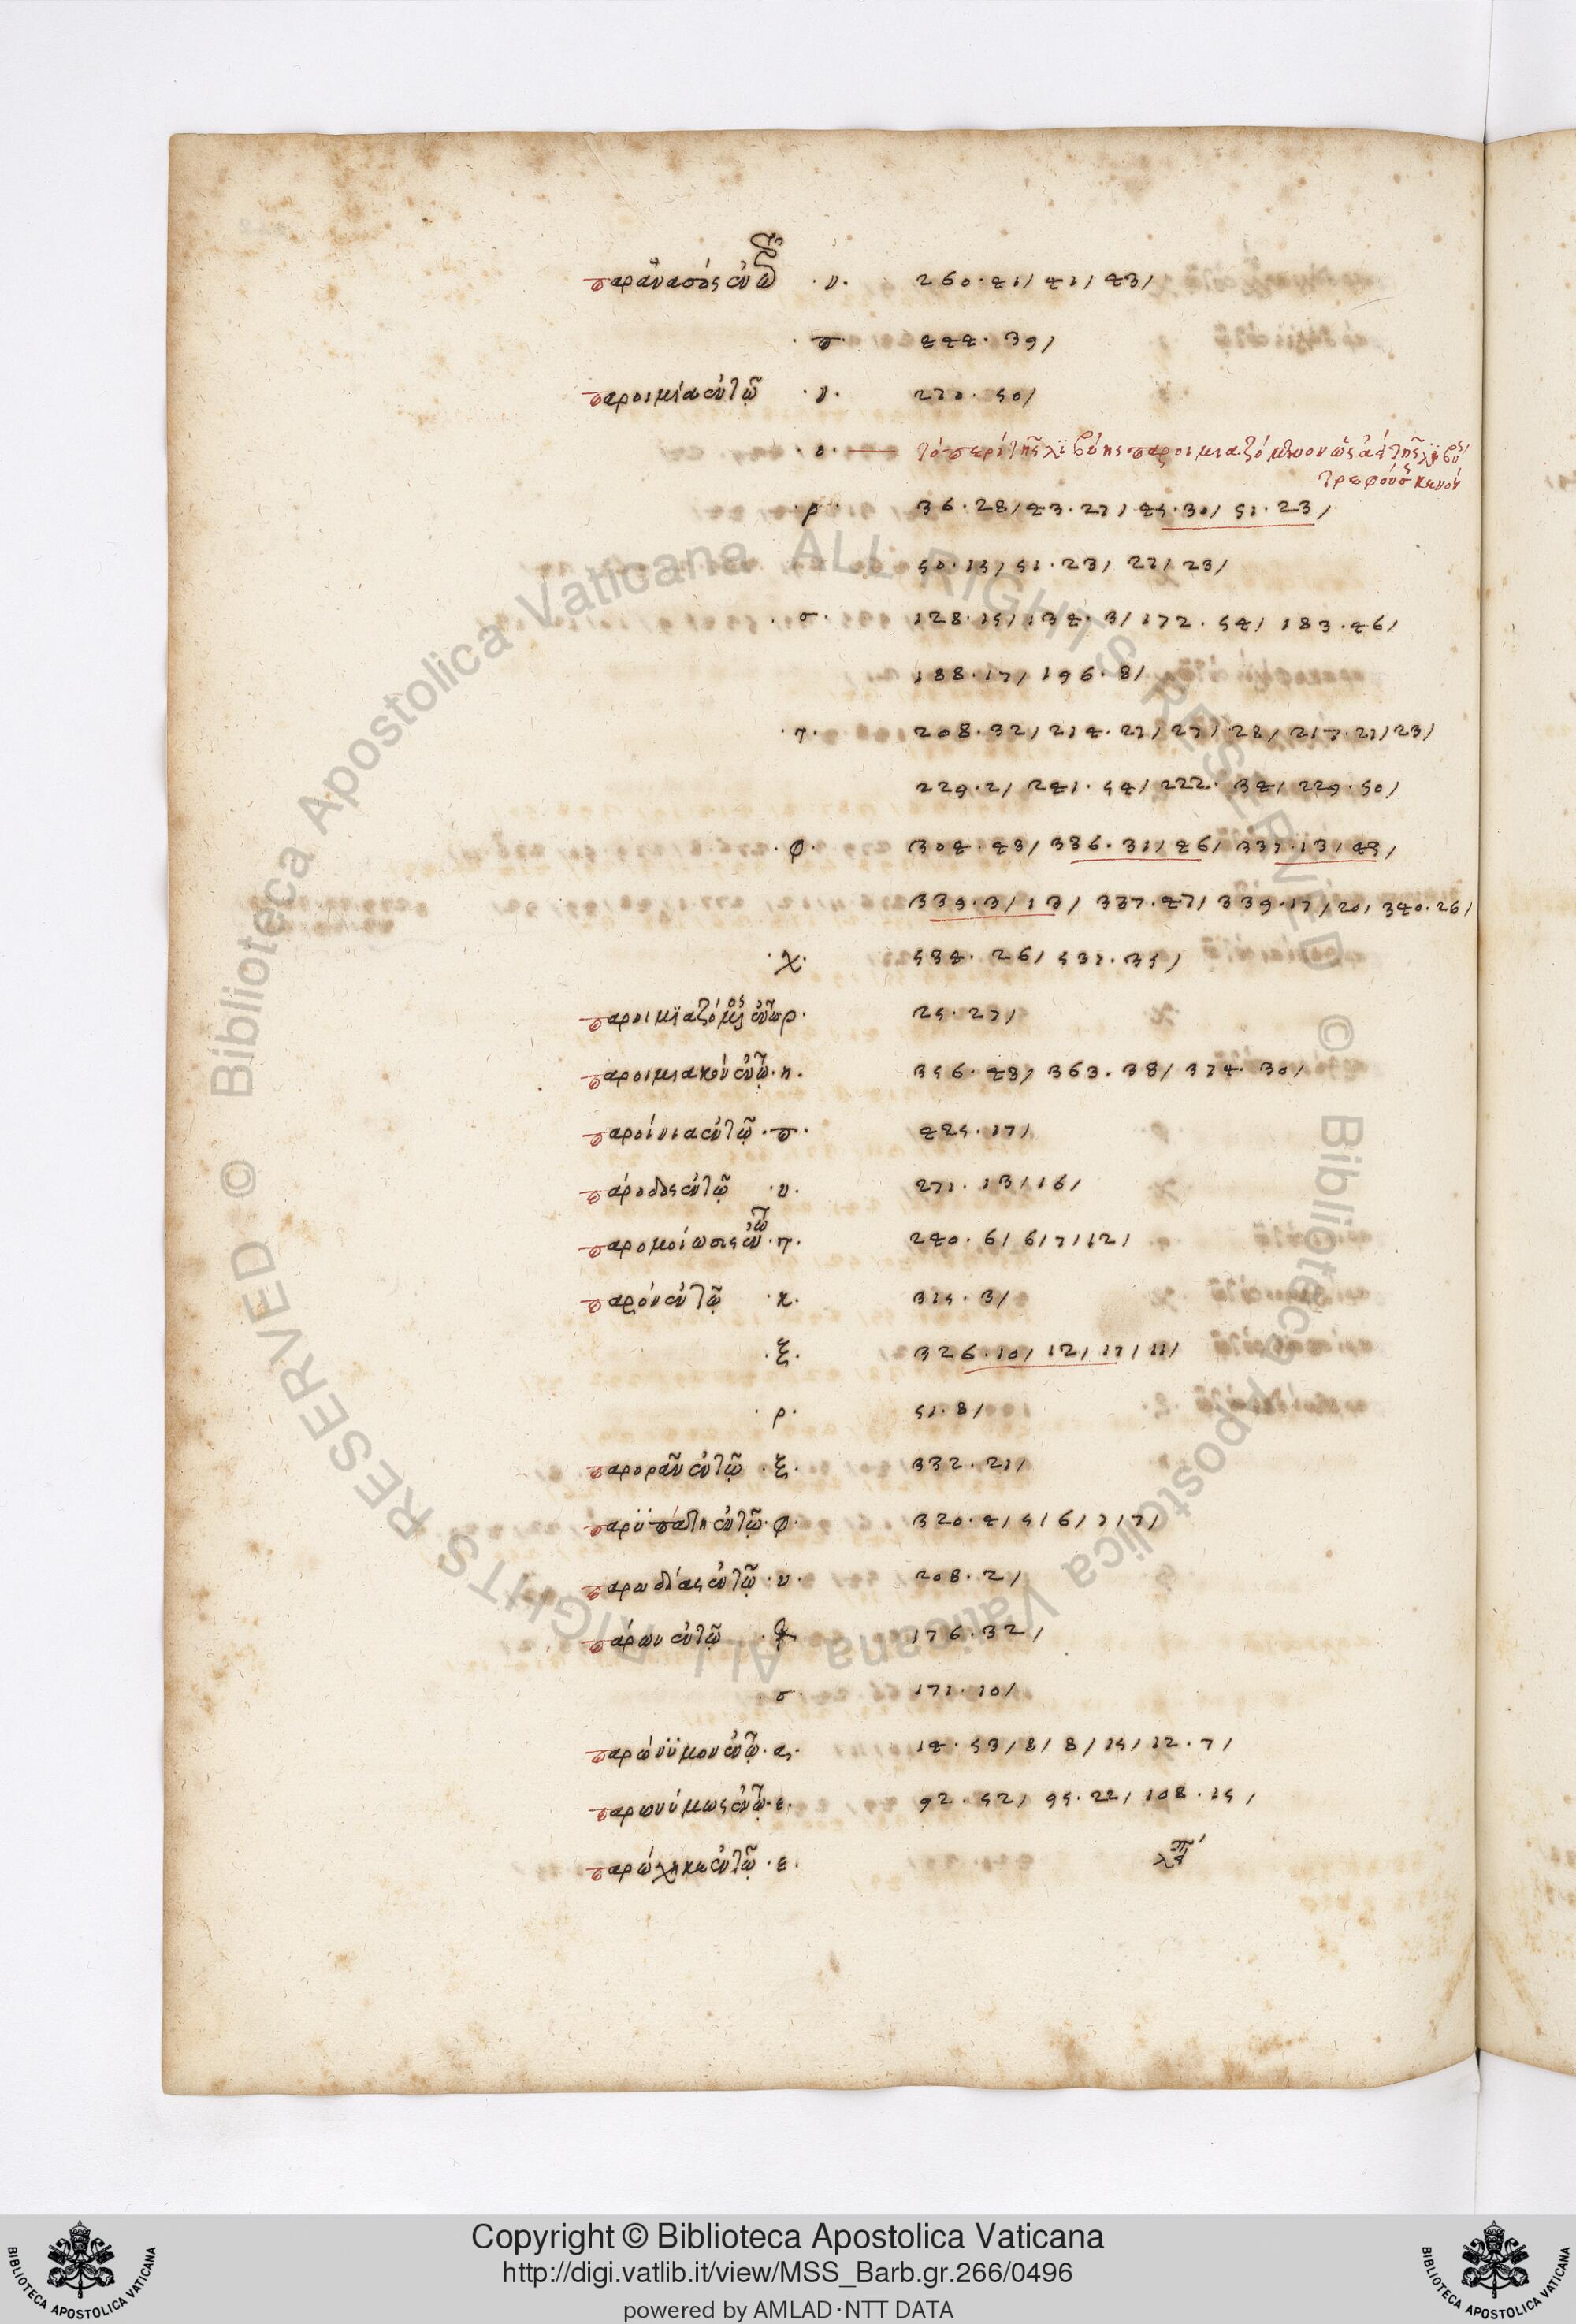 · ν · 260 · 41 / 41 / 43 /
· π · 444 · 39 /
παροιμία ἐν τῷ · ν · 270 · 50 /
· ο · — τὸ περὶ τῆς λϊβύης
· ρ · 36 · 28 / 43 · 27 / 45 · 30 / 51 · 23 /
50 · 13 / 51 · 23 / 22 / 23 /
· σ · 128 · 15 / 134 · 3 / 172 · 54 / 183 · 46 /
188 · 17 / 196 · 8 /
· τ · 208 · 32 / 214 · 21 / 27 / 28 / 217 · 21 / 23 /
229 · 2 / 241 · 54 / 222 · 34 / 229 · 50 /
· φ · 304 · 43 / 336 · 31 / 46 / 337 · 13 / 43 /
339 · 3 / 13 / 337 · 47 / 339 · 17 / 20 / 340 · 26 /
· χ · 534 · 26 / 531 · 35 /
ρ · 25 · 27 /
παροιμιακὸν ἐν τῷ · η · 356 · 43 / 363 · 38 / 374 · 30 /
παροίνια ἐν τῷ · π · 425 · 17 /
πάροδος ἐν τῷ · υ · 271 · 13 / 16 /
παρομοίωσις ἐν τῷ · τ · 240 · 6 / 6 / 7 / 12 /
παρὸν ἐν τῷ · κ · 315 · 3 /
· ξ · 326 · 10 / 12 / 17 / 11 /
· ρ · 51 · 8 /
παρορᾶν ἐν τῷ · ξ · 332 · 21 /
παρϋπάτη ἐν τῷ · φ · 320 · 4 / 5 / 6 / 7 / 7 /
παρωδίας ἐν τῷ · υ · 208 · 2 /
παρὼν ἐν τῷ 176 · 32 /
· σ · 171 · 10 /
παρώνϋμον ἐν τῷ · α · 14 · 53 / 8 / 8 / 15 / 12 · 7 /
παρωνύμως ἐν τῷ · ε · 92 · 52 / 95 · 22 / 108 · 15 /
παρώχηκε ἐν τῷ · ε ·
© Biblioteca Apostolica Vaticana ALL RIGHTS RESERVED © Biblioteca Apostolica Vaticana ALL RIGHTS RESERVED
Copyright © Biblioteca Apostolica Vaticana
http://digi.vatlib.it/view/MSS_Barb.gr.266/0496
powered by AMLAD·NTT DATA
BIBLIOTECA APOSTOLICA VATICANA
BIBLIOTECA APOSTOLICA VATICANA